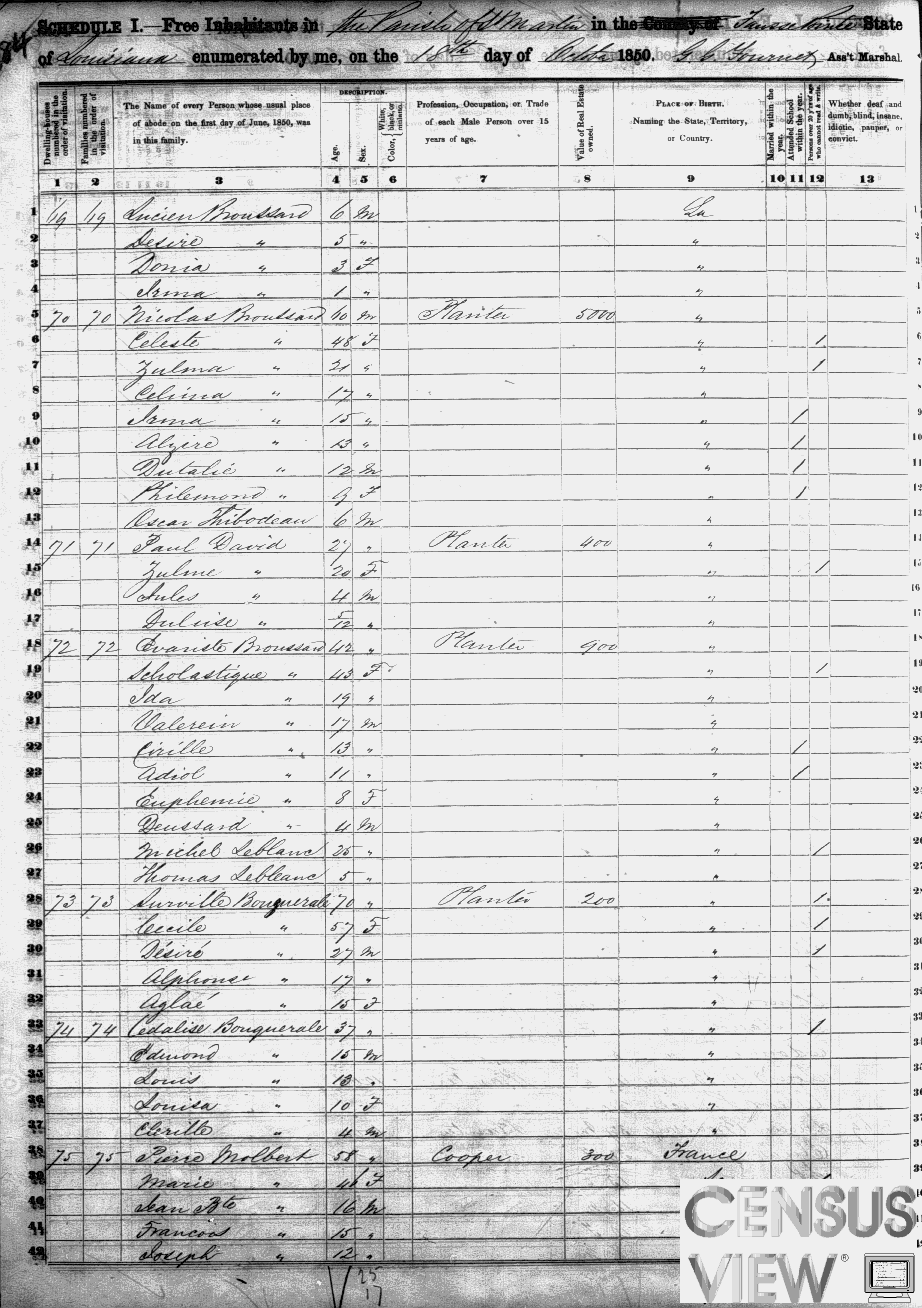 84
SCHEDULE I.—Free Inhabitants in the Parish of St Martin in the County of State
of Louisiana enumerated by me, on the 18th day of October 1850. Ass't Marshal.
Dwelling-houses numbered in the order of visitation.
Families numbered in the order of visitation.
The Name of every Person whose usual place of abode on the first day of June, 1850, was in this family.
DESCRIPTION.
Age.
Sex.
Color, White, black, or mulatto.
Profession, Occupation, or Trade of each Male Person over 15 years of age.
Value of Real Estate owned.
PLACE OF BIRTH. Naming the State, Territory, or Country.
Married within the year.
Attended School within the year.
Persons over 20 y'rs of age who cannot read & write.
Whether deaf and dumb, blind, insane, idiotic, pauper, or convict.
1 2 3 4 5 6 7 8 9 10 11 12 13
1 69 69 Lucien Broussard 6 M La
2 Desire " 5 " "
3 Donia " 3 F "
4 Irma " 1 " "
5 70 70 Nicolas Broussard 60 M Planter 5000 "
6 Celeste " 48 F " /
7 Zulma " 21 " " /
8 Celima " 17 " "
9 Irma " 15 " " /
10 Alzire " 13 " " /
11 Dutalié " 12 M " /
12 Philemond " 9 F " /
13 Oscar Thibodeau 6 M "
14 71 71 Paul David 27 " Planter 400 "
15 Zulme " 20 F " /
16 Jules " 4 M "
17 Duluise " 5/12 " "
18 72 72 Evariste Broussard 42 " Planter 900 "
19 Scholastique " 43 F " /
20 Ida " 19 " "
21 Valerein " 17 M "
22 Cirille " 13 " " /
23 Adiol " 11 " " /
24 Euphemie " 8 F "
25 Deussard " 4 M "
26 Michel Leblanc 25 " " /
27 Thomas Lebleanc 5 " "
28 73 73 Surville Bouquerale 70 " Planter 200 " /
29 Cecile " 57 F " /
30 Désiré " 27 M " /
31 Alphonse " 17 "
32 Aglaé " 15 F "
33 74 74 Cedalise Bouquerale 37 " " /
34 Edmond " 15 M "
35 Louis " 13 " "
36 Louisa " 10 F "
37 Clerille " 4 M "
38 75 75 Pierre Molbert 58 " Cooper 300 France
39 Marie " F
40 Jean Bte " 16 M
41 Francois " 15 "
42 Joseph " 12 "
25
17
CENSUS
VIEW®